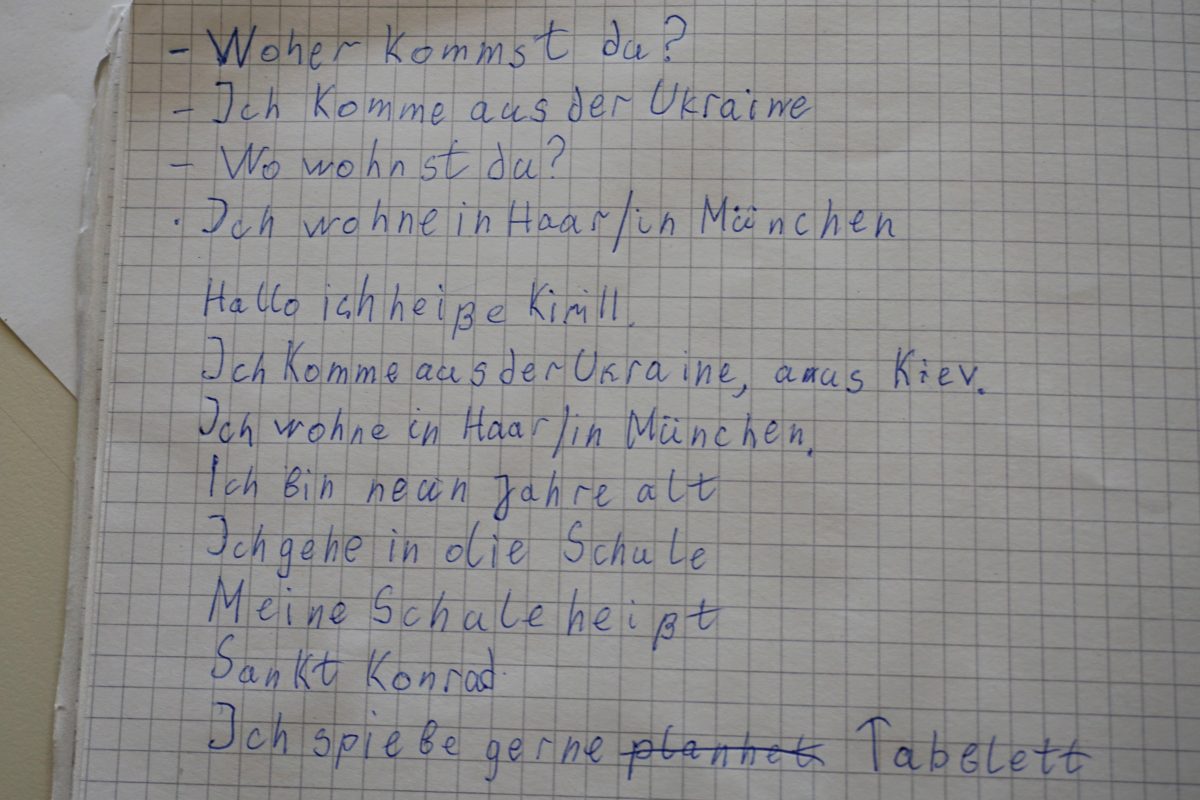 - Woher kommst du?
- Ich komme aus der Ukraine
- Wo wohnst du?
· Ich wohne in Haar/in München
Hallo ich heiße Kirill.
Ich komme aus der Ukraine, aus Kiev.
Ich wohne in Haar/in München.
Ich bin neun Jahre alt
Ich gehe in die Schule
Meine Schule heißt
Sankt Konrad
Ich spiele gerne planhet Tabelett